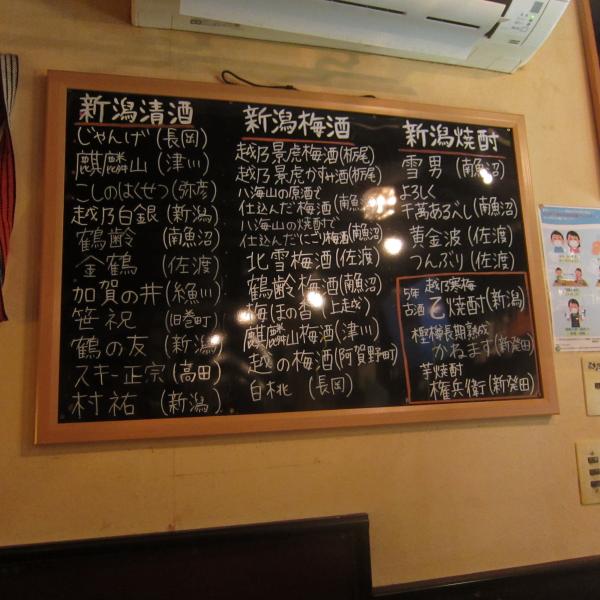 新潟清酒
じゃんげ (長岡)
麒麟山 (津川)
こしのはくせつ (弥彦)
越乃白銀 (新潟)
鶴齢 (南魚沼)
金鶴 (佐渡)
加賀の井 (糸魚川)
笹祝 (旧巻町)
鶴の友 (新潟)
スキー正宗 (高田)
村祐 (新潟)
新潟梅酒
越乃景虎梅酒 (栃尾)
越乃景虎かすみ酒 (栃尾)
八海山の原酒で
仕込んだ梅酒 (南魚
八海山の焼酎で
仕込んだにごり梅酒 (南魚沼)
北雪梅酒 (佐渡)
鶴齢梅酒 (南魚沼)
梅ほの香 (上越)
麒麟山梅酒 (津川)
越の梅酒 (阿賀野町)
白桃 (長岡)
新潟焼酎
雪男 (南魚沼)
よろしく
千萬あるべし (南魚沼)
黄金波 (佐渡)
つんぶり (佐渡)
越乃寒梅
5年
お酒 乙焼酎 (新潟)
樫樽長期熟成
かねます (新発田)
芋焼酎
権兵衛 (新発田)